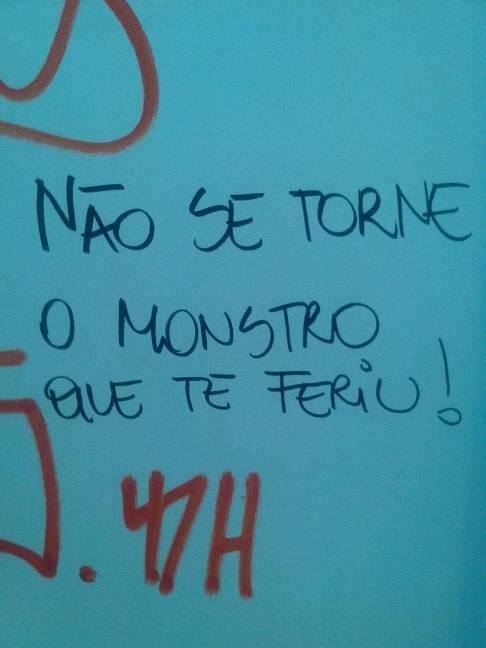 NÃO SE TORNE
O MONSTRO
QUE TE FERIU!